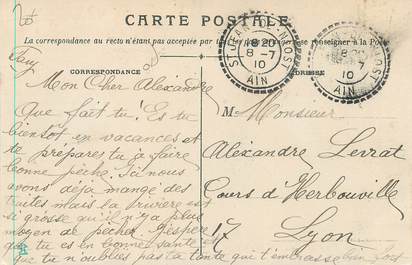 CARTE POSTALE
La correspondance au recto n'étant pas acceptée par
renseigner à la Poste
CORRESPONDANCE
ADRESSE
8 20
8 - 7
10
AIN
8 - 7
10
AIN
Mon Cher Alexandre
Que fait tu. Es tu
bientôt en vacances et
te prépares tu à faire
bonne pêche. Ici nous
avons déja mangé des
truites mais la rivière est
si grosse qu'il n'y a plus
moyen de pêcher. J'espère
que tu es en bonne santé et
que tu n'oublies pas ta tante qui t'embrasse bien fort
M Monsieur
Alexandre Levrat
Cours d'Herbouville
17
Lyon